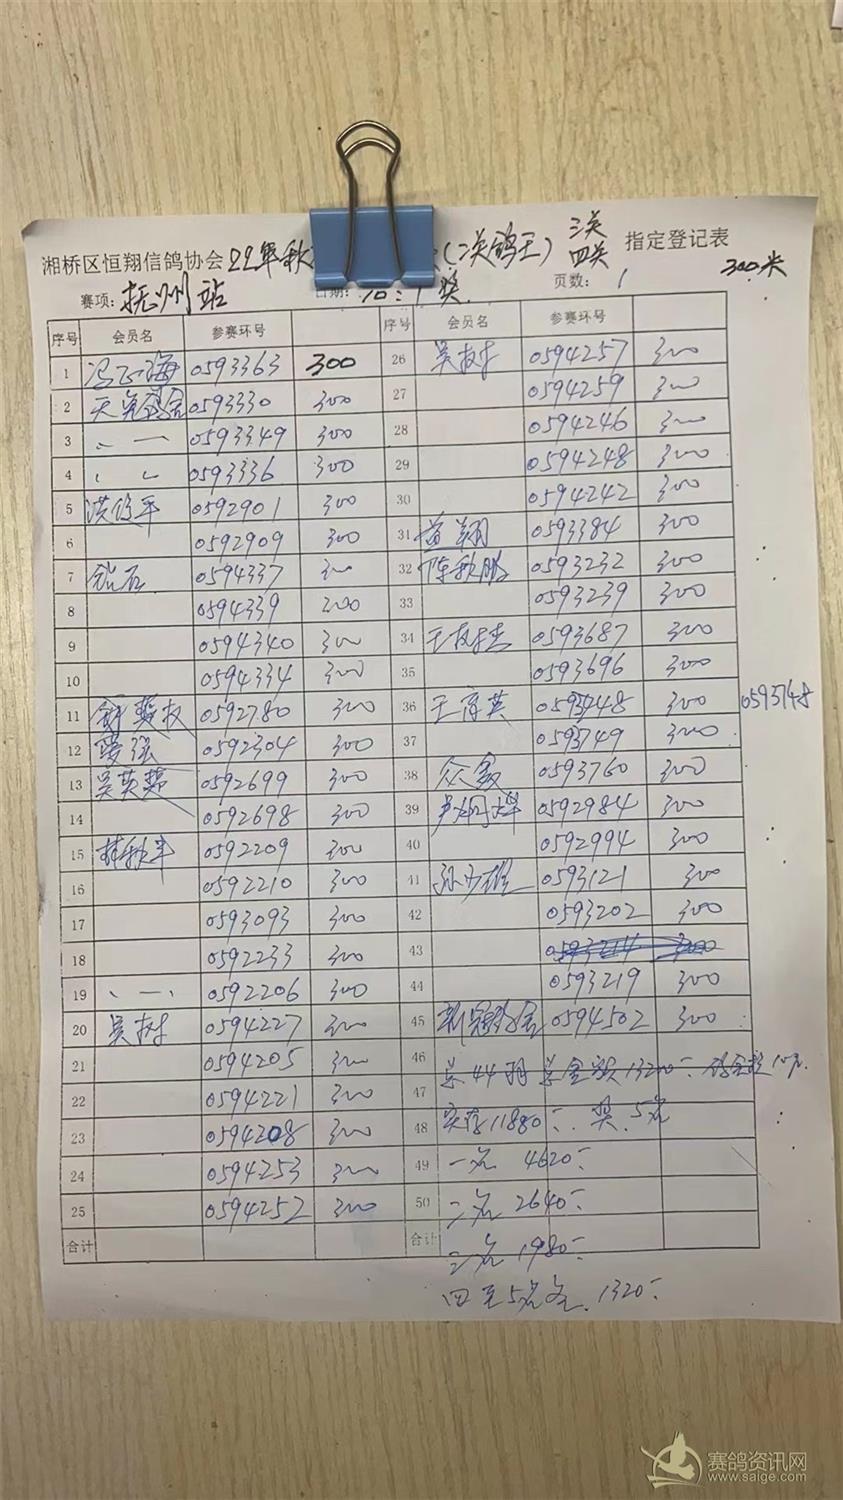 湘桥区恒翔信鸽协会22年秋(二关鸽王)三关四关 指定登记表
赛项:抚州站 日期:10:1奖 页数:1 300米
序号 会员名 参赛环号 序号 会员名 参赛环号
1 冯正海 0593363 300 26 吴树 0594257 300
2 天冕鸽舍 0593330 300 27 0594259 300
3 0593349 300 28 0594246 300
4 0593336 300 29 0594248 300
5 洪俊平 0592901 300 30 0594242 300
6 0592909 300 31 翔 0593384 300
7 钻石 0594337 300 32 陈秋鹏 0593232 300
8 0594339 300 33 0593239 300
9 0594340 300 34 王 0593687 300
10 0594334 300 35 0593696 300
11 0592780 300 36 王英 0593748 300 0593748
12 0592304 300 37 0593749 300
13 吴英 0592699 300 38 众鑫 0593760 300
14 0592698 300 39 0592984 300
15 林秋平 0592209 300 40 0592994 300
16 0592210 300 41 孙少雄 0593121 300
17 0593093 300 42 0593202 300
18 0592233 300 43 0593214 300
19 0592206 300 44 0593219 300
20 吴树 0594227 300 45 0594502 300
21 0594205 300 46
22 0594221 300 47 总44羽 总金额13200
23 0594208 300 48 实存11880 奖5名
24 0594253 300 49 一名 4620
25 0594252 300 50 二名 2640
合计 合计
三名 1980
四至5名各 1320
赛鸽资讯网
www.saige.com